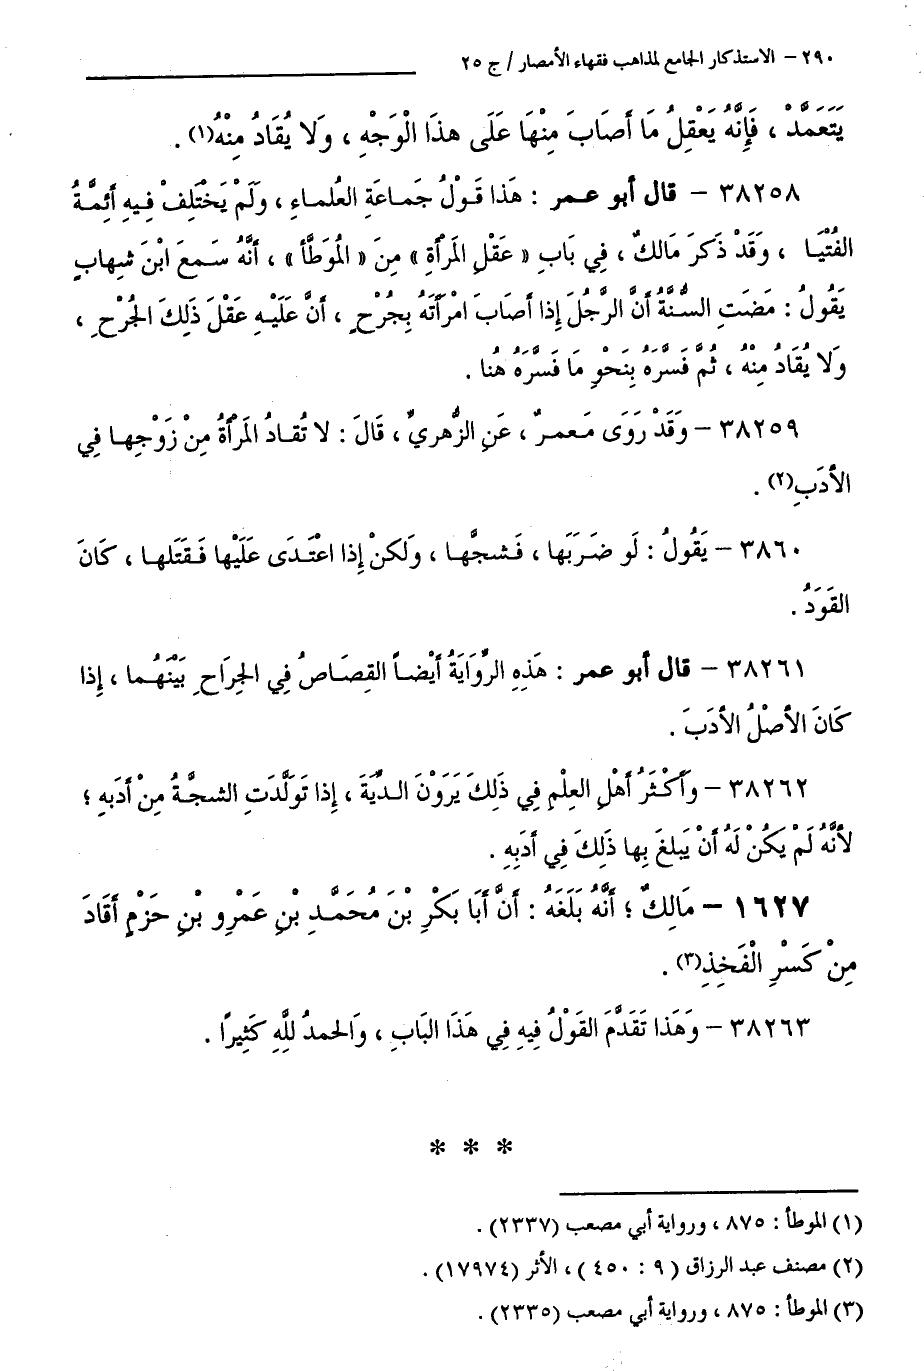 ٢٩٠ – الاستذكار الجامع لمذاهب فقهاء الأمصار / ج ٢٥
يَتَعَمَّدْ ، فَإِنَّهُ يَعْقِلُ مَا أَصَابَ مِنْهَا عَلَى هذَا الْوَجْهِ ، وَلَا يُقَادُ مِنْهُ(١) .
٣٨٢٥٨ – قال أبو عمر : هَذَا قَوْلُ جَمَاعَةِ العُلماءِ ، وَلَمْ يَخْتَلِفْ فِيهِ أَئِمَّةُ
الفُتْيَا ، وَقَدْ ذَكَرَ مَالكٌ ، فِي بَابِ « عَقْلِ المَرْأَةِ » مِنَ « المُوَطَّأ » ، أَنَّهُ سَمِعَ ابْنَ شِهابٍ
يَقُولُ : مَضَتِ السُّنَّةُ أَنَّ الرَّجُلَ إِذَا أَصَابَ امْرَأَتَهُ بِجُرْحٍ ، أَنَّ عَلَيْهِ عَقْلَ ذَلِكَ الجُرْحِ ،
وَلا يُقَادُ مِنْهُ ، ثُمَّ فَسَّرَهُ بِنَحْوِ مَا فَسَّرَهُ هُنا .
٣٨٢٥٩ – وَقَدْ رَوَى مَعمرٌ ، عَنِ الزُّهريِّ ، قَالَ : لا تُقادُ المَرْأَةُ مِنْ زَوْجِها فِي
الأدَبِ(٢) .
٣٨٦٠ – يَقُولُ : لَو ضَرَبَها ، فَشجَّها ، وَلَكنْ إِذا اعْتَدَى عَلَيْها فَقَتَلها ، كَانَ
القَوَدُ .
٣٨٢٦١ – قال أبو عمر : هَذِهِ الرِّوَايَةُ أَيْضاً القِصَاصُ فِي الجِرَاحِ بَيْنَهُما ، إِذا
كَانَ الأصْلُ الأدَبَ .
٣٨٢٦٢ – وَأَكْثَرُ أَهْلِ العِلْمِ فِي ذَلِكَ يَرَوْنَ الدِّيَةَ ، إِذا تَوَلَّدَتِ الشجَّةُ مِنْ أدَبِهِ ؛
لأنَّهُ لَمْ يَكُنْ لَهُ أَنْ يَبلغَ بِها ذَلِكَ فِي أدَبِهِ .
١٦٢٧ – مَالِكٌ ؛ أَنَّهُ بَلَغَهُ : أَنَّ أَبَا بَكْرِ بْنَ مُحَمَّدِ بْنِ عَمْرِو بْنِ حَزْمٍ أَقَادَ
مِنْ كَسْرِ الْفَخِذِ(٣) .
٣٨٢٦٣ – وَهَذا تَقَدَّمَ القَوْلُ فِيهِ فِي هَذَا البَابِ ، وَالحمدُ للَّهِ كَثِيراً .
* * *
(١) الموطأ : ٨٧٥ ، ورواية أبي مصعب (٢٣٣٧) .
(٢) مصنف عبد الرزاق ( ٩ : ٤٥٠ ) ، الأثر (١٧٩٧٤) .
(٣) الموطأ : ٨٧٥ ، ورواية أبي مصعب (٢٣٣٥) .